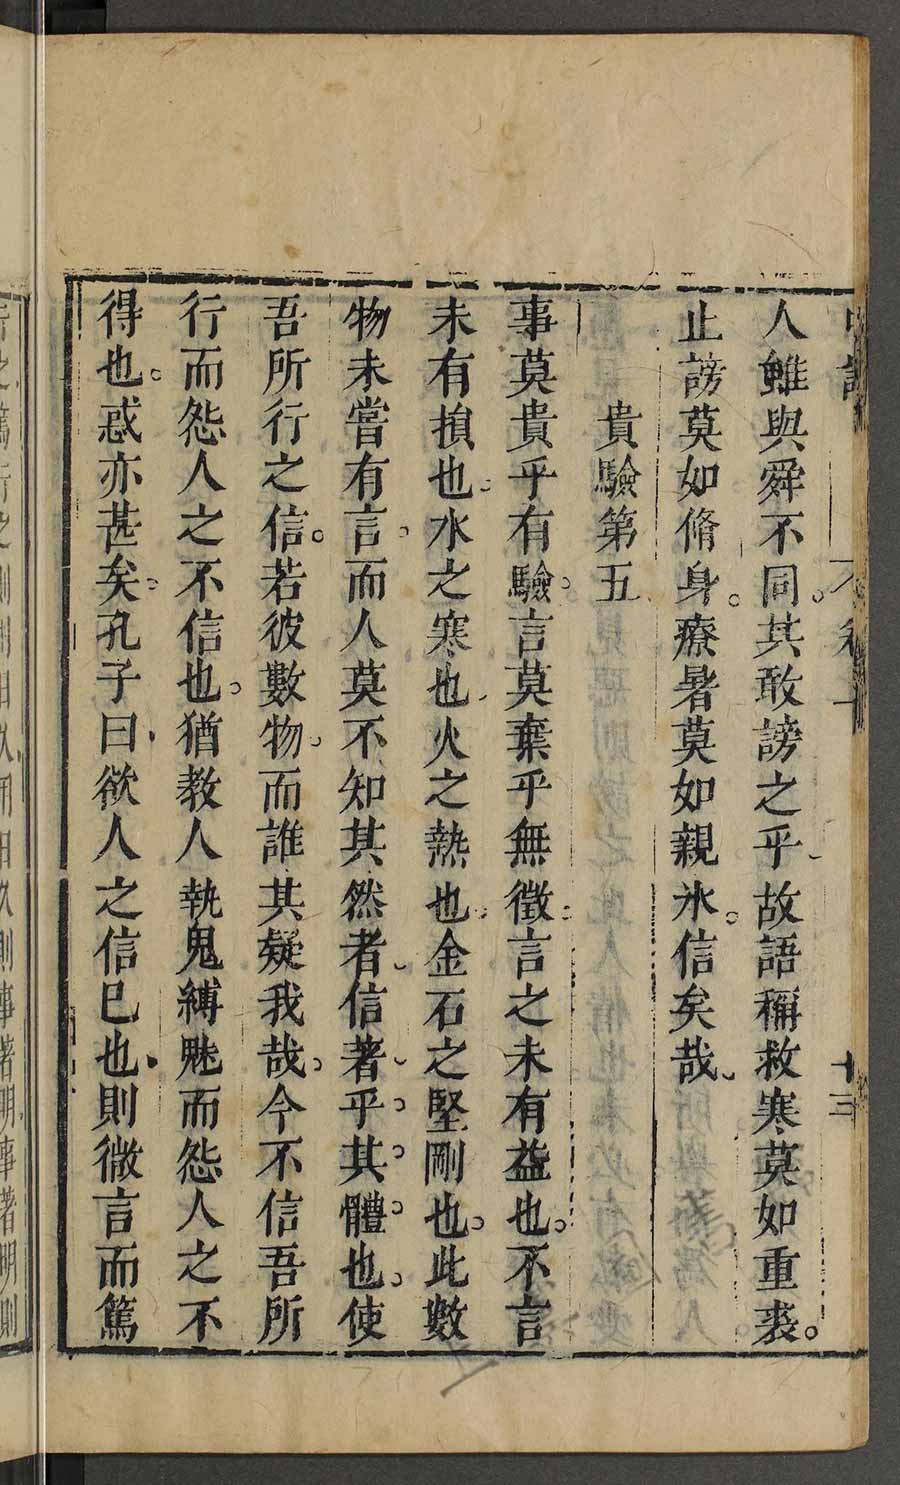 人雖與舜不同其敢謗之乎故語稱救寒莫如重裘。
止謗莫如脩身。療暑莫如親氷。信矣哉
貴驗第五
事莫貴乎有驗。言莫棄乎無徵。言之未有益也。不言
未有損也。水之寒也火之熱也。金石之堅剛也。此數
物未嘗有言。而人莫不知其然者信著乎其體也使
吾所行之信。若彼數物而誰其疑我哉。今不信吾所
行而怨人之不信也。猶教人執鬼縛魅而怨人之不
得也。惑亦甚矣。孔子曰欲人之信已也則微言而篤
卷
十三